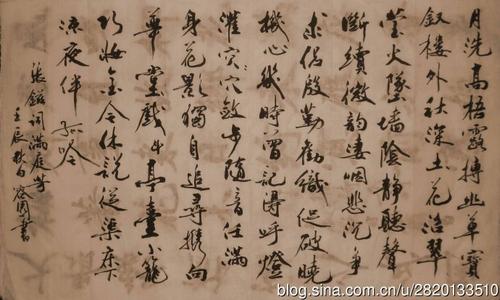 月洗高梧露漙幽草寶
釵樓外秋深土花沿翠
螢火墜墻陰靜聽聲
斷續微韻淒咽悲沉争
求侶殷勤勸織促破曉
機心兒時曾記得呼燈
灌穴敛步隨音任滿
身花影獨自追尋攜向
華堂戲斗亭臺小籠
巧妝金今休說從渠床下
涼夜伴孤吟
張鎡詞滿庭芳
壬辰秋書
blog.sina.com.cn/u/2820133510